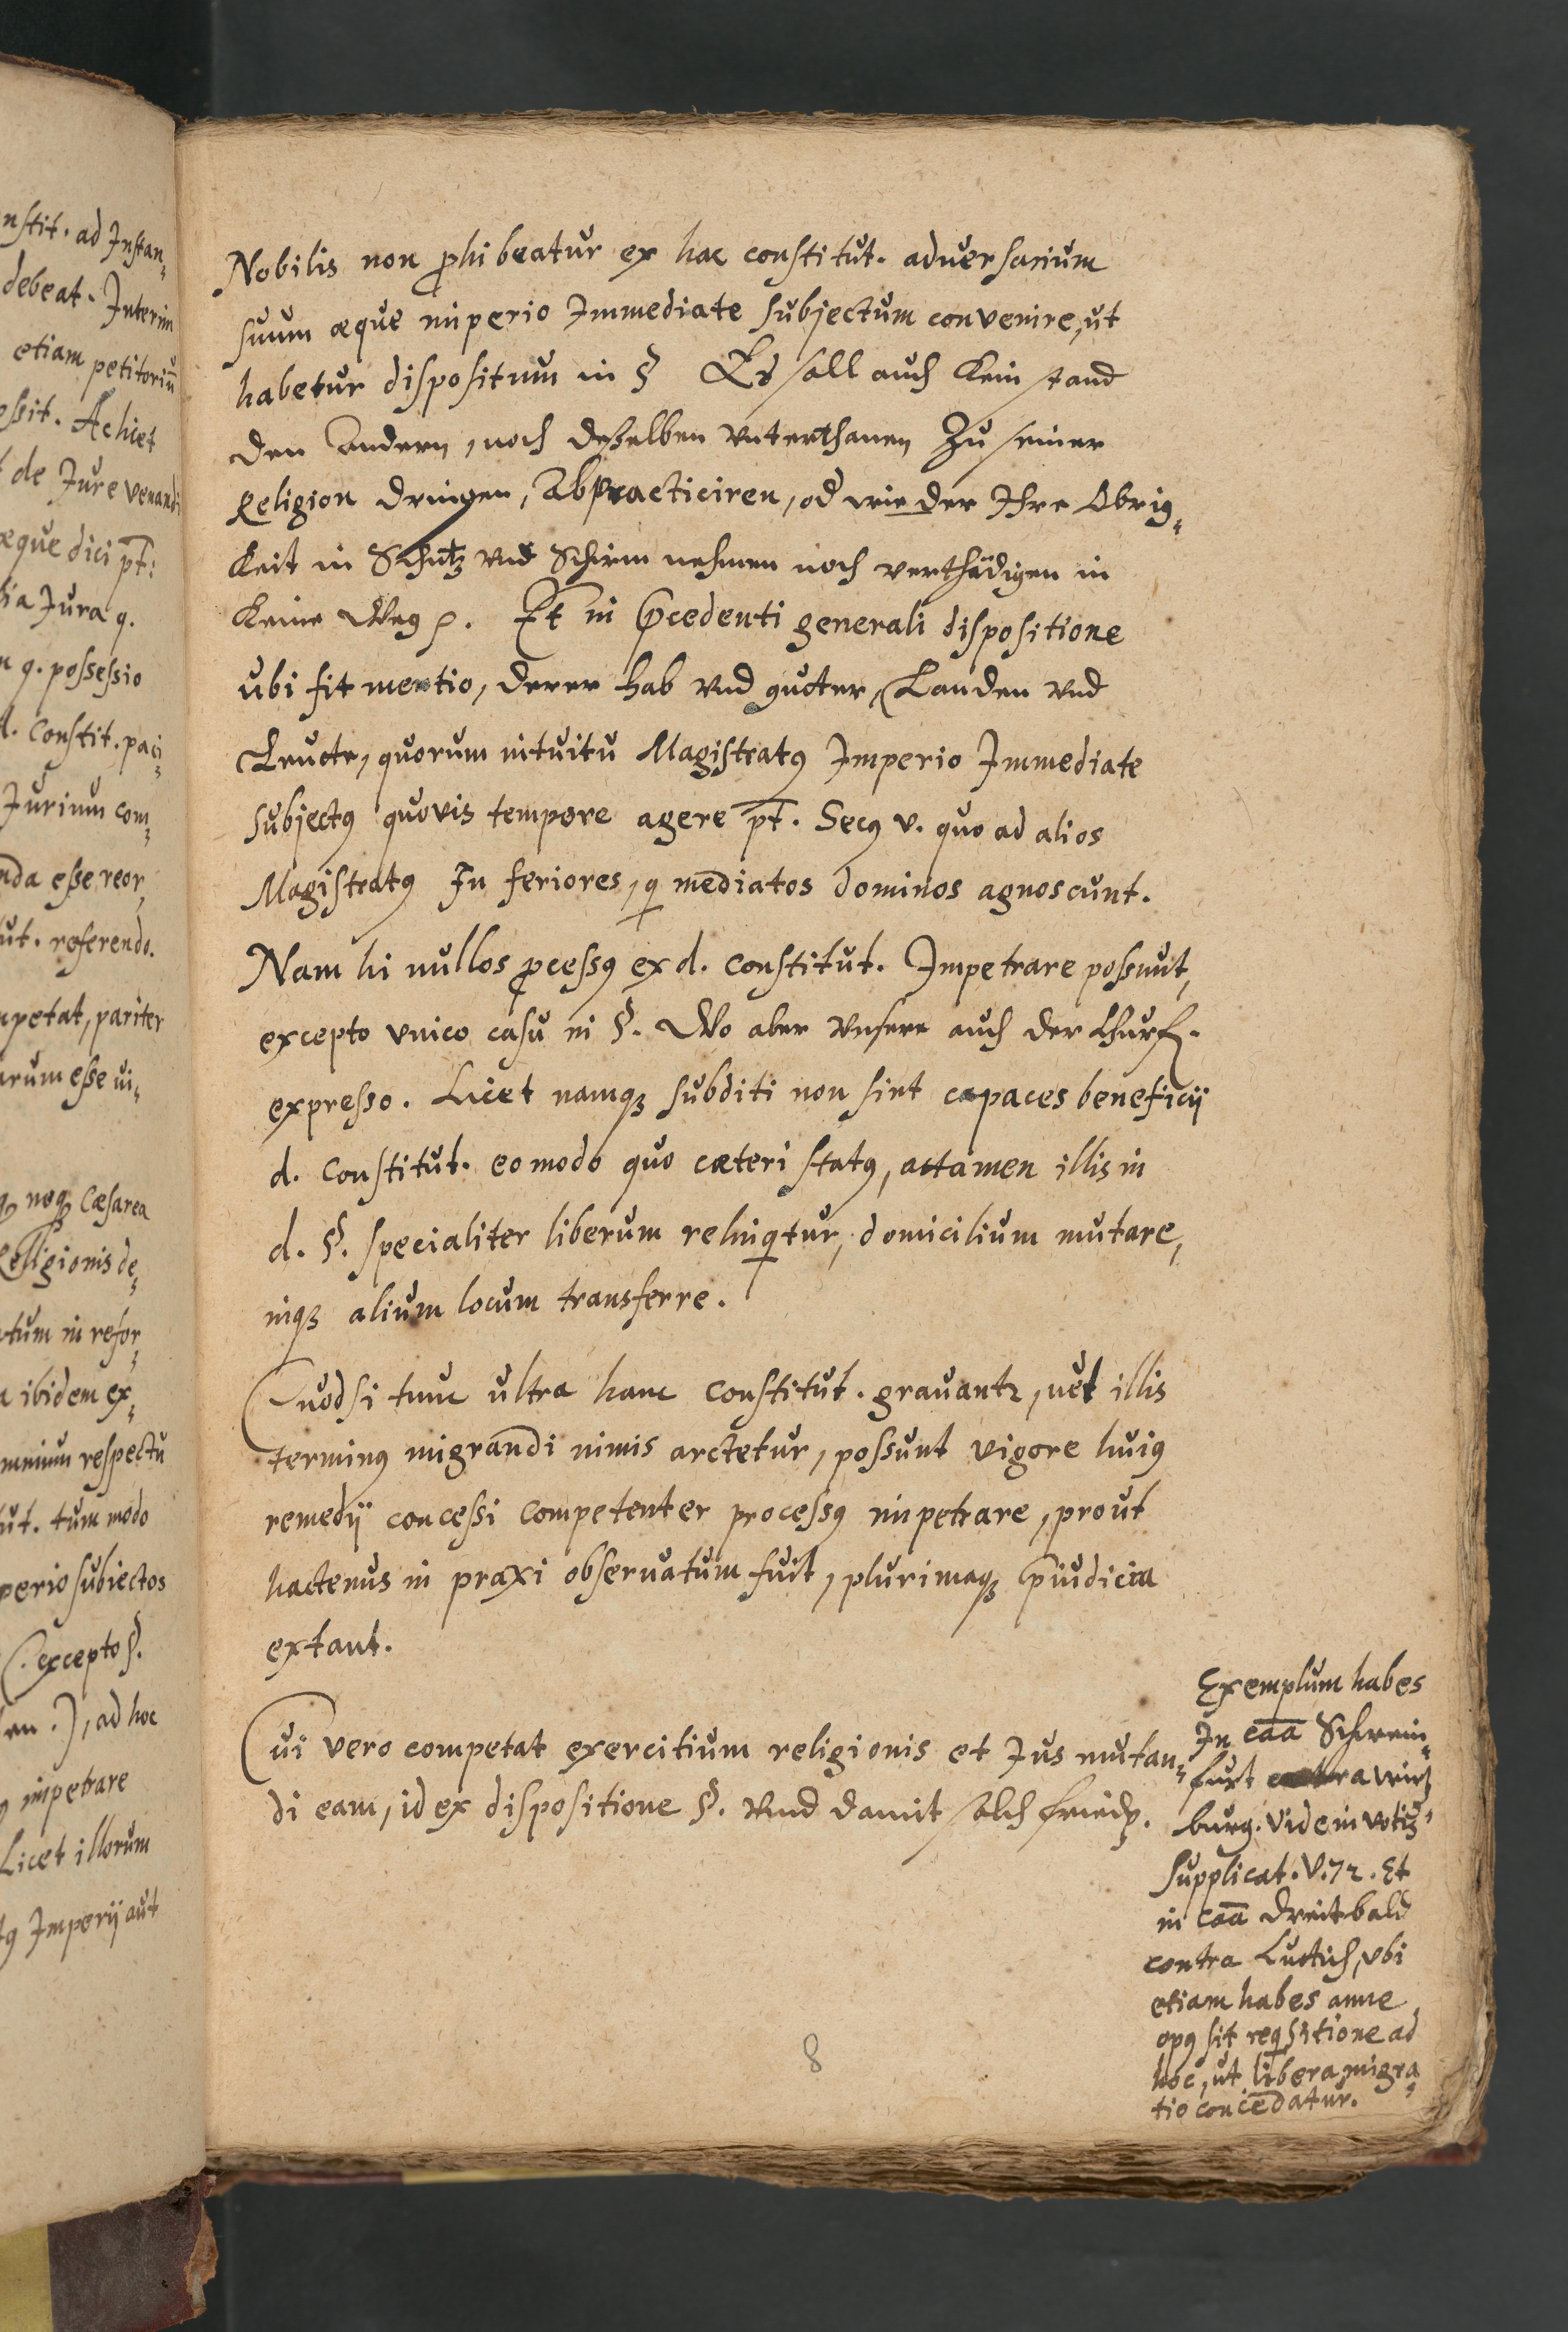 nstit. ad Instan¬
debeat. Interim
etiam petitoriū
essit. Ac hiet
de Jure venandi
æque dici pt:
Jura q.
q. possessio
d. Constit. paci¬
Jurium com¬
nda esse reor,
tut. referendo.
mpetat, pariter
arum esse ui¬
neq3 Cæsarea
Religionis de¬
tum in refor¬
ibidem ex¬
omnium respectu
tut. tum modo
perio subiectos
(excepto §.
en.), ad hoc
impetrare
Licet illorum
Imperij aut
Nobilis non phibeatur ex hac constitut. aduersarium
suum æque imperio Immediate subjectum convenire, ut
habetur dispositum in § Es soll auch Kein stand
den andern, noch deßelben vnterthanen Zu seiner
Religion dringen, Abpracticiren, od wieder Ihre Obrig¬
Keit in Schutz vnd Schirm nehmen noch verthädigen in
Keine Weg ꝛc. Et in pcedenti generali dispositione
ubi fit mentio, derer hab vnd gueter, Landen vnd
Leuete, quorum intuitu Magistratq Imperio Immediate
subjectq quovis tempore agere pt. Secq v. quo ad alios
Magistratq In feriores, q mediatos dominos agnoscunt.
Nam hi nullos pcessq ex d. constitut. Impetrare possunt,
excepto vnico casu in §. Wo aber vnsere auch der Churf.
expresso. Licet namq3 subditi non sint capaces beneficij
d. Constitut. eo modo quo cæteri statq, attamen illis in
d. §. specialiter liberum relinqtur, domicilium mutare,
inq3 alium locum transferre.
Quodsi tunc ultra hanc Constitut. grauantr, uel illis
terminq migrandi nimis arctetur, possunt vigore huiq
remedij concessi competenter processq impetrare, prout
hactenus in praxi obseruatum fuit, plurimaq3 piudicia
extant.
Cui vero competat exercitium religionis et Jus mutan¬
di eam, id ex dispositione §. Vnd damit solch friedꝛ.
Exemplum habes
In caā Schwein¬
furt contra Wirtz
burg. Vide in votis
supplicat. V. 72. Et
in caā Dreitbald
contra Luttich, vbi
etiam habes anne
opq sit reqsitione ad
hoc, ut libera migra¬
tio concedatur.
8